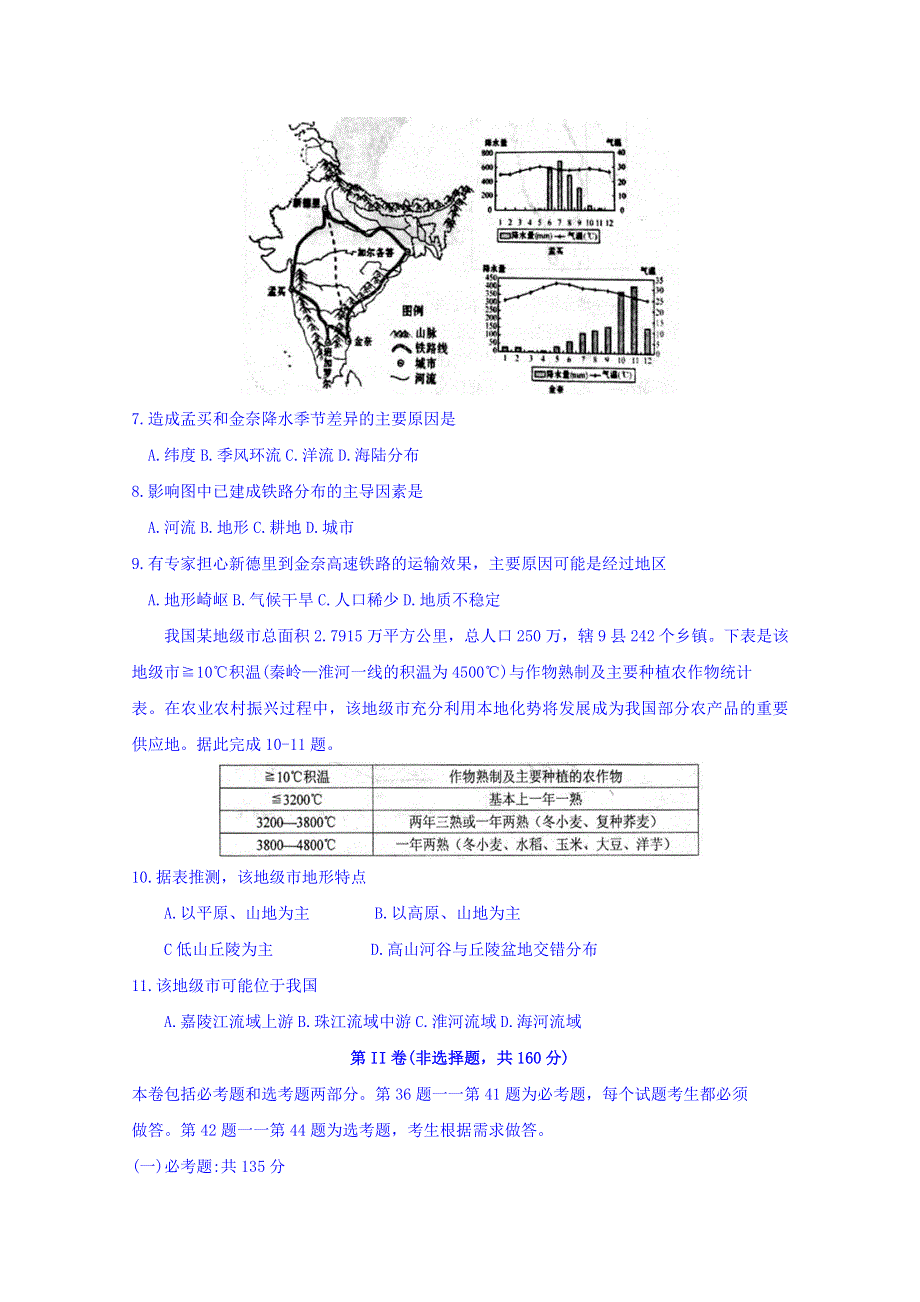 降水量 气温
800 40
600 30
400 20
200 10
0 0
1 2 3 4 5 6 7 8 9 10 11 12
降水量(mm) 气温(℃)
孟买
新德里
加尔各答
孟买
金奈
班加罗尔
图例
山脉
铁路线
城市
河流
降水量 气温
450 35
400 30
350 25
300
250 20
200 15
150 10
100
50 5
0 0
1 2 3 4 5 6 7 8 9 10 11 12
降水量(mm) 气温(℃)
金奈
7.造成孟买和金奈降水季节差异的主要原因是
A.纬度 B.季风环流 C.洋流 D.海陆分布
8.影响图中已建成铁路分布的主导因素是
A.河流 B.地形 C.耕地 D.城市
9.有专家担心新德里到金奈高速铁路的运输效果，主要原因可能是经过地区
A.地形崎岖 B.气候干旱 C.人口稀少 D.地质不稳定
我国某地级市总面积 2.7915 万平方公里，总人口 250 万，辖 9 县 242 个乡镇。下表是该
地级市≧10℃积温(秦岭—淮河一线的积温为 4500℃)与作物熟制及主要种植农作物统计
表。在农业农村振兴过程中，该地级市充分利用本地化势将发展成为我国部分农产品的重要
供应地。据此完成 10-11 题。
≧10℃积温 作物熟制及主要种植的农作物
≦3200℃ 基本上一年一熟
3200—3800℃ 两年三熟或一年两熟（冬小麦、复种荞麦）
3800—4800℃ 一年两熟（冬小麦、水稻、玉米、大豆、洋芋）
10.据表推测，该地级市地形特点
A.以平原、山地为主 B.以高原、山地为主
C 低山丘陵为主 D.高山河谷与丘陵盆地交错分布
11.该地级市可能位于我国
A.嘉陵江流域上游 B.珠江流域中游 C.淮河流域 D.海河流域
第 II 卷(非选择题，共 160 分)
本卷包括必考题和选考题两部分。第 36 题一一第 41 题为必考题，每个试题考生都必须
做答。第 42 题一一第 44 题为选考题，考生根据需求做答。
(一)必考题:共 135 分